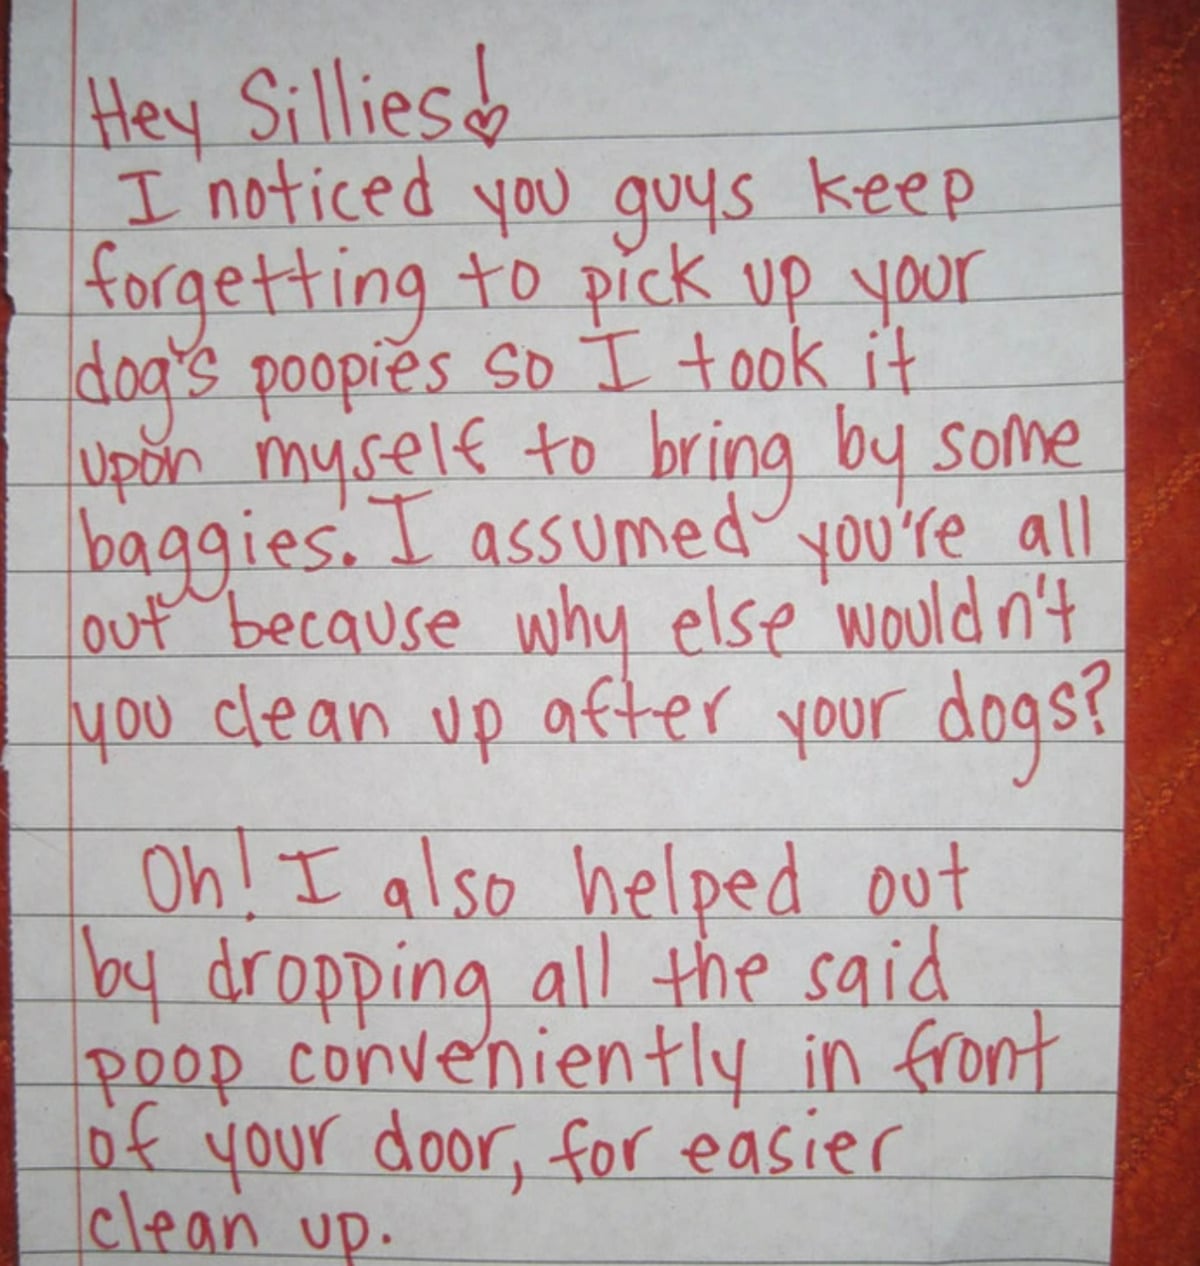 Hey Sillies!
I noticed you guys keep
forgetting to pick up your
dog's poopies so I took it
upon myself to bring by some
baggies. I assumed you're all
out because why else wouldn't
you clean up after your dogs?
Oh! I also helped out
by dropping all the said
poop conveniently in front
of your door, for easier
clean up.